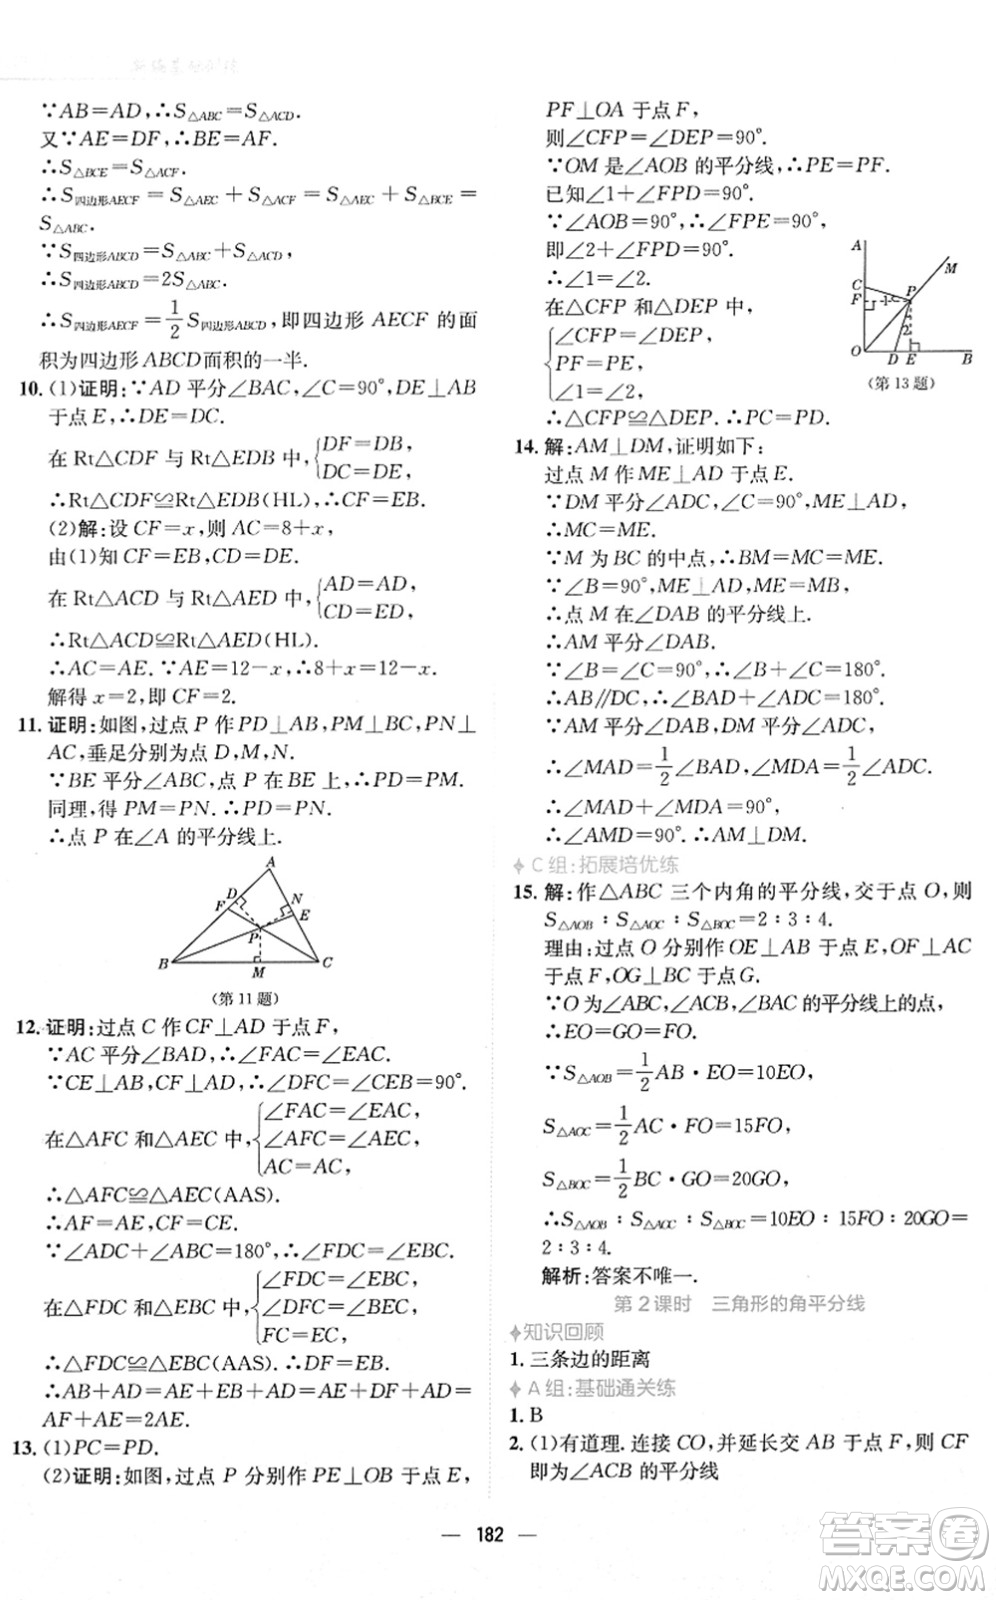 ∵AB=AD,∴S△ABC=S△ACD.
又∵AE=DF,∴BE=AF.
∴S△BCE=S△ACF.
∴S四边形AECF=S△AEC+S△ACF=S△AEC+S△BCE=
S△ABC.
∵S四边形ABCD=S△ABC+S△ACD,
∴S四边形ABCD=2S△ABC.
∴S四边形AECF=1/2S四边形ABCD,即四边形 AECF 的面
积为四边形 ABCD面积的一半.
10. (1)证明:∵AD 平分∠BAC,∠C=90°,DE⊥AB
于点 E,∴DE=DC.
在 Rt△CDF 与 Rt△EDB 中,{DF=DB,
DC=DE,
∴Rt△CDF≌Rt△EDB(HL).∴CF=EB.
(2)解:设 CF=x,则 AC=8+x.
由(1)知 CF=EB,CD=DE.
在 Rt△ACD 与 Rt△AED 中,{AD=AD,
CD=ED,
∴Rt△ACD≌Rt△AED(HL).
∴AC=AE.∵AE=12-x,∴8+x=12-x.
解得 x=2,即 CF=2.
11. 证明:如图,过点 P 作 PD⊥AB,PM⊥BC,PN⊥
AC,垂足分别为点 D,M,N.
∵BE 平分∠ABC,点 P 在 BE 上,∴PD=PM.
同理,得 PM=PN.∴PD=PN.
∴点 P 在∠A 的平分线上.
A
D
F
N
E
P
B
M
C
(第 11 题)
12. 证明:过点 C 作 CF⊥AD 于点 F,
∵AC 平分∠BAD,∴∠FAC=∠EAC.
∵CE⊥AB,CF⊥AD,∴∠DFC=∠CEB=90°.
在△AFC 和△AEC 中,{∠FAC=∠EAC,
∠AFC=∠AEC,
AC=AC,
∴△AFC≌△AEC(AAS).
∴AF=AE,CF=CE.
∵∠ADC+∠ABC=180°,∴∠FDC=∠EBC.
在△FDC 和△EBC 中,{∠FDC=∠EBC,
∠DFC=∠CEB,
FC=EC,
∴△FDC≌△EBC(AAS).∴DF=EB.
∴AB+AD=AE+EB+AD=AE+DF+AD=
AF+AE=2AE.
13. (1)PC=PD.
(2)证明:如图,过点 P 分别作 PE⊥OB 于点 E,
PF⊥OA 于点 F,
则∠CFP=∠DEP=90°.
∵OM 是∠AOB 的平分线,∴PE=PF.
已知∠1+∠FPD=90°.
∵∠AOB=90°,∴∠FPE=90°,
即∠2+∠FPD=90°.
∴∠1=∠2.
在△CFP 和△DEP 中,
{∠CFP=∠DEP,
PF=PE,
∠1=∠2,
∴△CFP≌△DEP.∴PC=PD.
A
M
C
P
F
1
2
O
D
E
B
(第 13 题)
14. 解:AM⊥DM,证明如下:
过点 M 作 ME⊥AD 于点 E.
∵DM 平分∠ADC,∠C=90°,ME⊥AD,
∴MC=ME.
∵M 为 BC 的中点,∴BM=MC=ME.
∵∠B=90°,ME⊥AD,ME=MB,
∴点 M 在∠DAB 的平分线上.
∴AM 平分∠DAB.
∵∠B=∠C=90°,∴∠B+∠C=180°.
∴AB∥DC,∴∠DAB+∠ADC=180°.
∵AM 平分∠DAB,DM 平分∠ADC,
∴∠MAD=1/2∠DAB,∠MDA=1/2∠ADC.
∴∠MAD+∠MDA=90°,
∴∠AMD=90°.∴AM⊥DM.
C 组:拓展培优练
15. 解:作△ABC 三个内角的平分线,交于点 O,则
S△AOB∶S△AOC∶S△BOC=2∶3∶4.
理由:过点 O 分别作 OE⊥AB 于点 E,OF⊥AC
于点 F,OG⊥BC 于点 G.
∵O 为∠ABC,∠ACB,∠BAC 的平分线上的点,
∴EO=GO=FO.
∵S△AOB=1/2AB·EO=10EO,
S△AOC=1/2AC·FO=15FO,
S△BOC=1/2BC·GO=20GO,
∴S△AOB∶S△AOC∶S△BOC=10EO∶15FO∶20GO=
2∶3∶4.
解析:答案不唯一.
第 2 课时 三角形的角平分线
知识回顾
1. 三条边的距离
A 组:基础通关练
1. B
2. (1)有道理.连接 CO,并延长交 AB 于点 F,则 CF
即为∠ACB 的平分线
— 182 —
答案圈
MXQE.COM